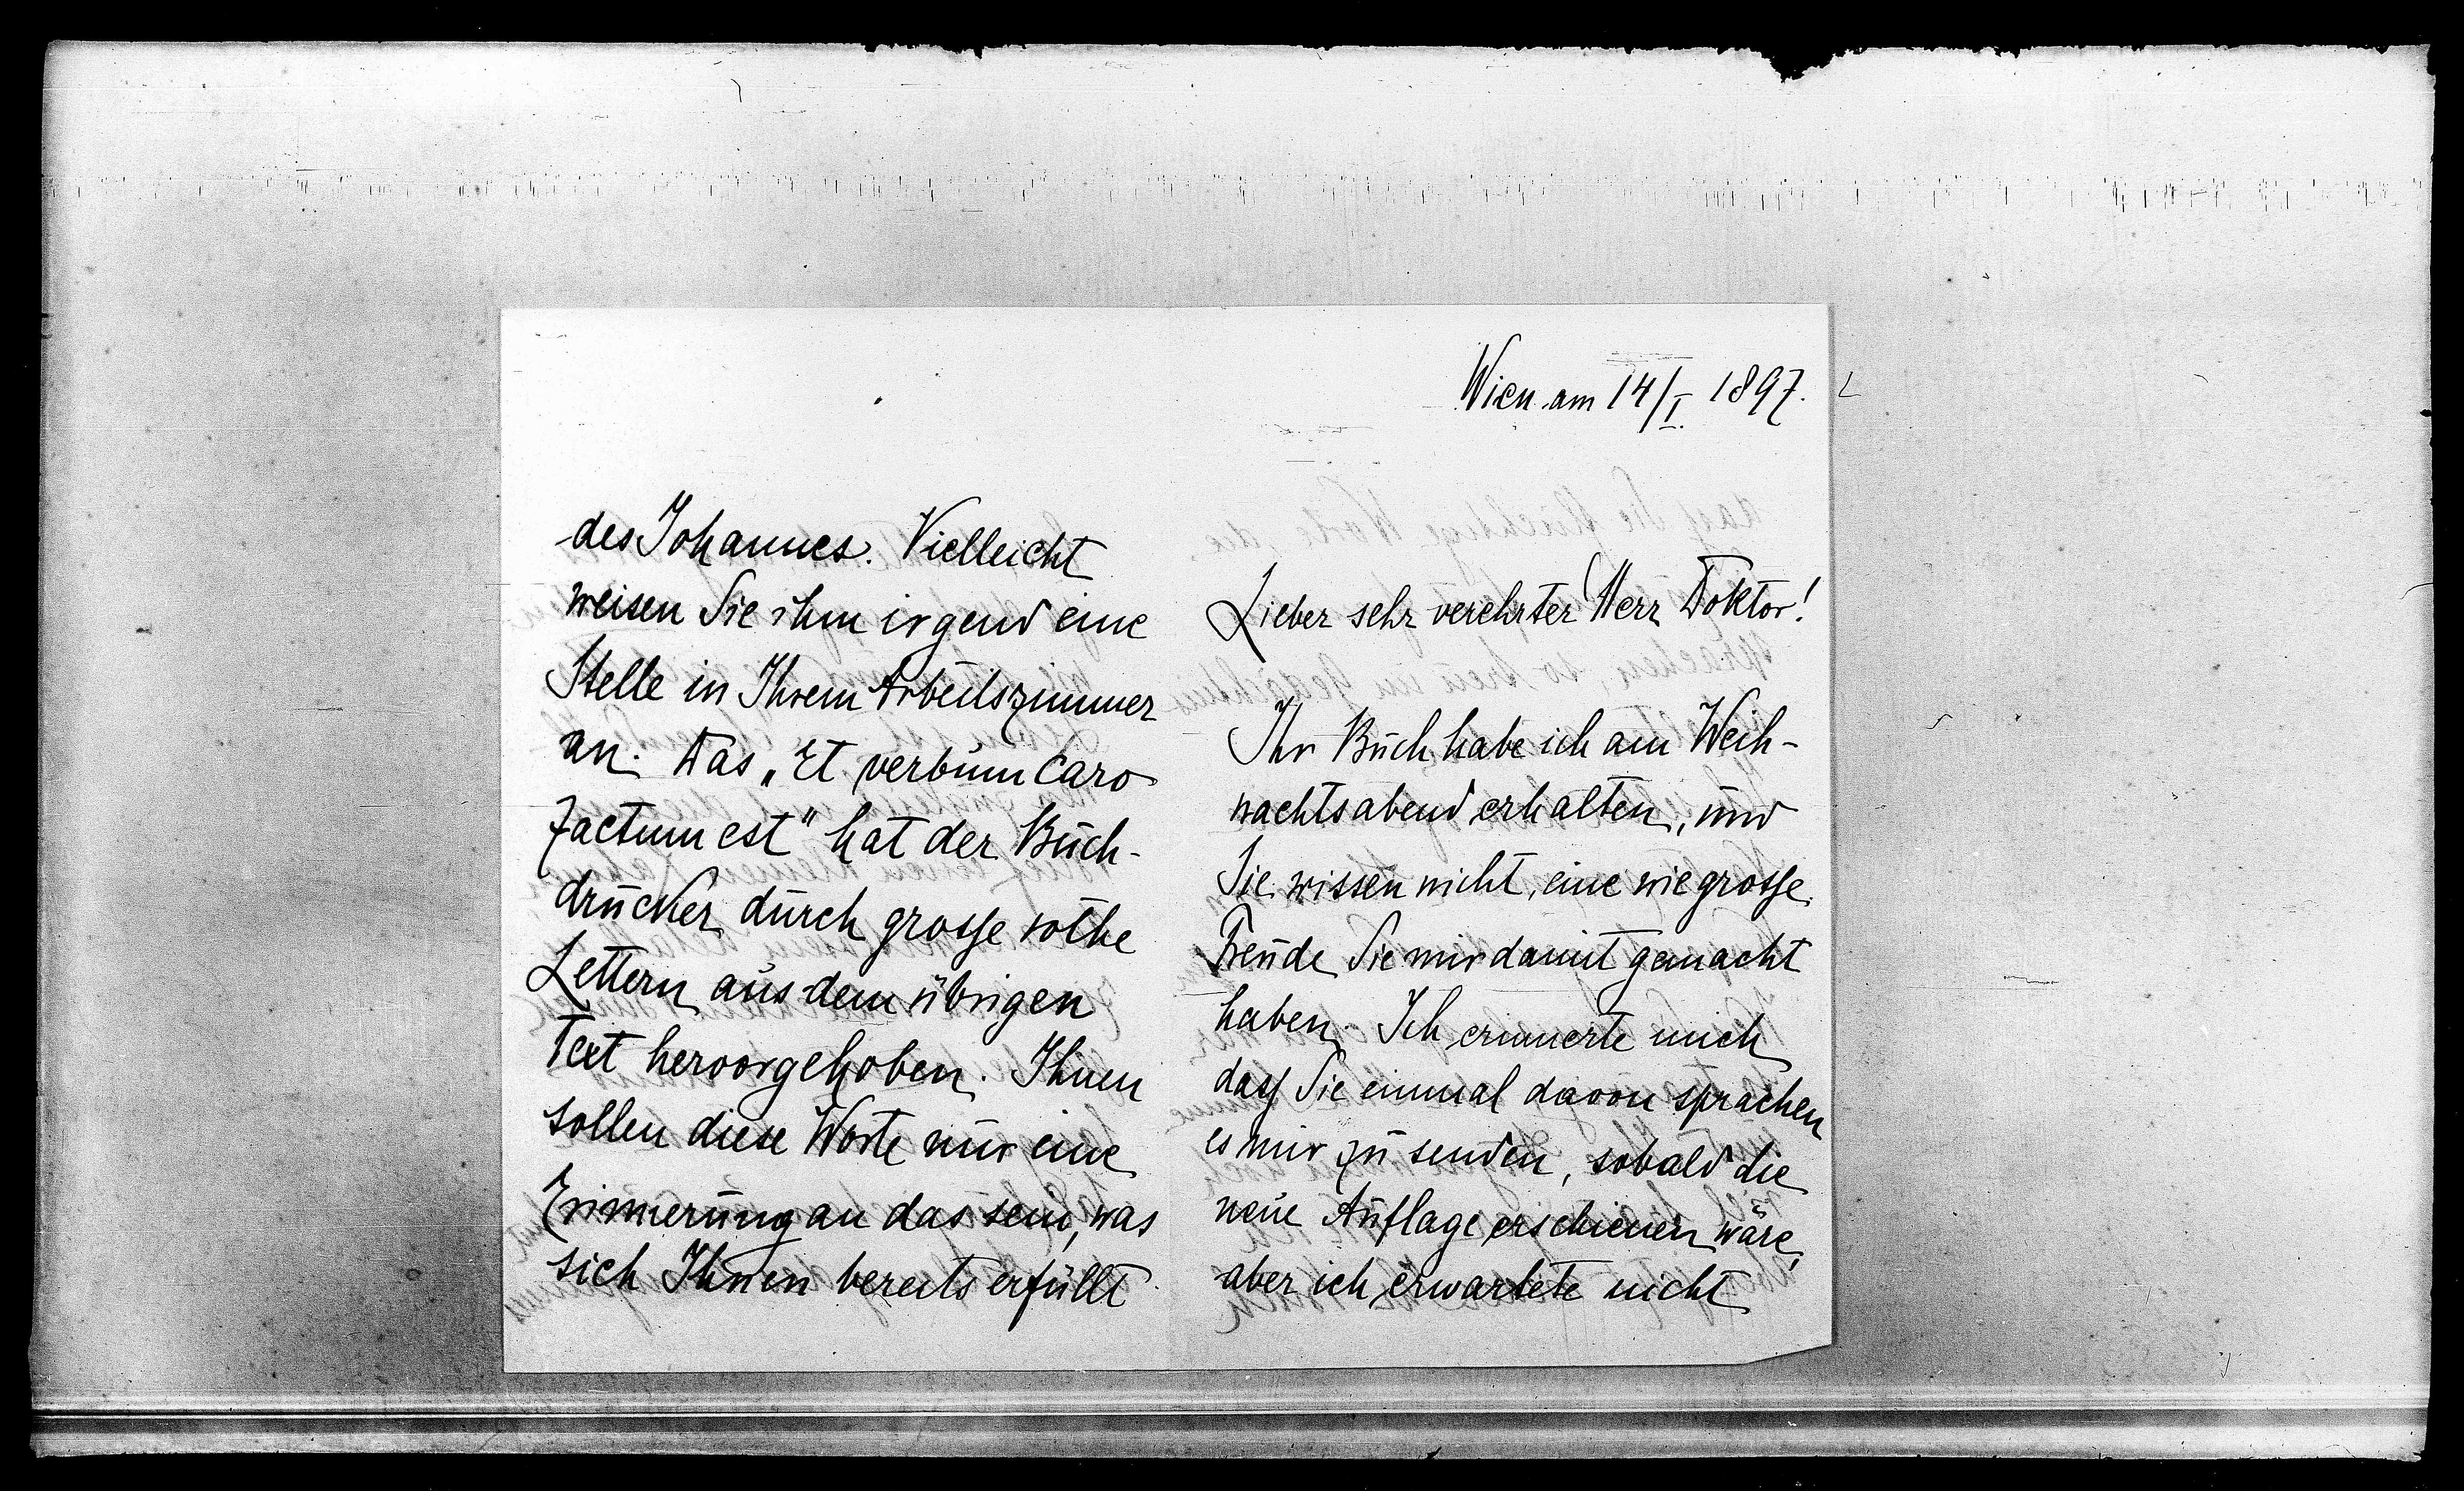 Wien am 14/I. 1897.
Lieber sehr verehrter Herr Doktor!
Ihr Buch habe ich am Weih-
nachtsabend erhalten, und
Sie wissen nicht, eine wie grosse
Freude Sie mir damit gemacht
haben. Ich erinnerte mich
dass Sie einmal davon sprachen
es mir zu senden, sobald die
neue Auflage erschienen wäre,
aber ich erwartete nicht
des Johannes. Vielleicht
weisen Sie ihm irgend eine
Stelle in Ihrem Arbeitszimmer
an. Das „Et verbum Caro
factum est" hat der Buch-
drucker durch grosse rothe
Lettern aus dem übrigen
Text hervorgehoben. Ihnen
sollen diese Worte nur eine
Erinnerung an das sein, was
sich Ihnen bereits erfüllt